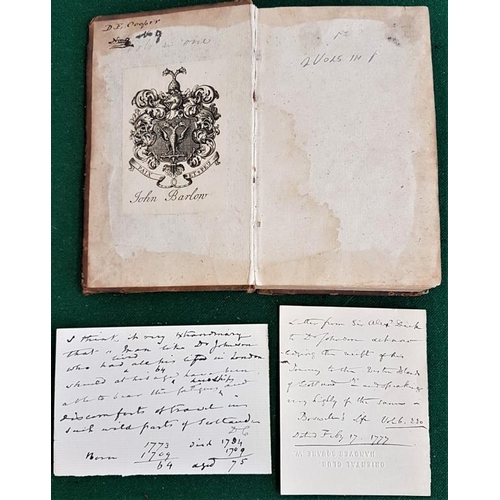 D. F. Cooper
No 9
one
2 VOLS III
PAIX ET PEU
John Barlow
I think it very extraordinary
that a man like Dr Johnson
who had all his life lived in London
should at 64 have been
able to bear the fatigues and hardships
discomforts of travel in
such wild parts of Scotland
D C
1773 died 1784
Born 1709 1709
64 aged 75
Letter from Sir Alexr Dick
to Dr Johnson acknow
ledging the gift of his
Journey to the Western Islands
of Scotland and speaking
very highly of the same -
Boswell's Life Vol. 6. 220
Dated Feby 17. 1777
ORIENTAL CLUB
HANOVER SQUARE W